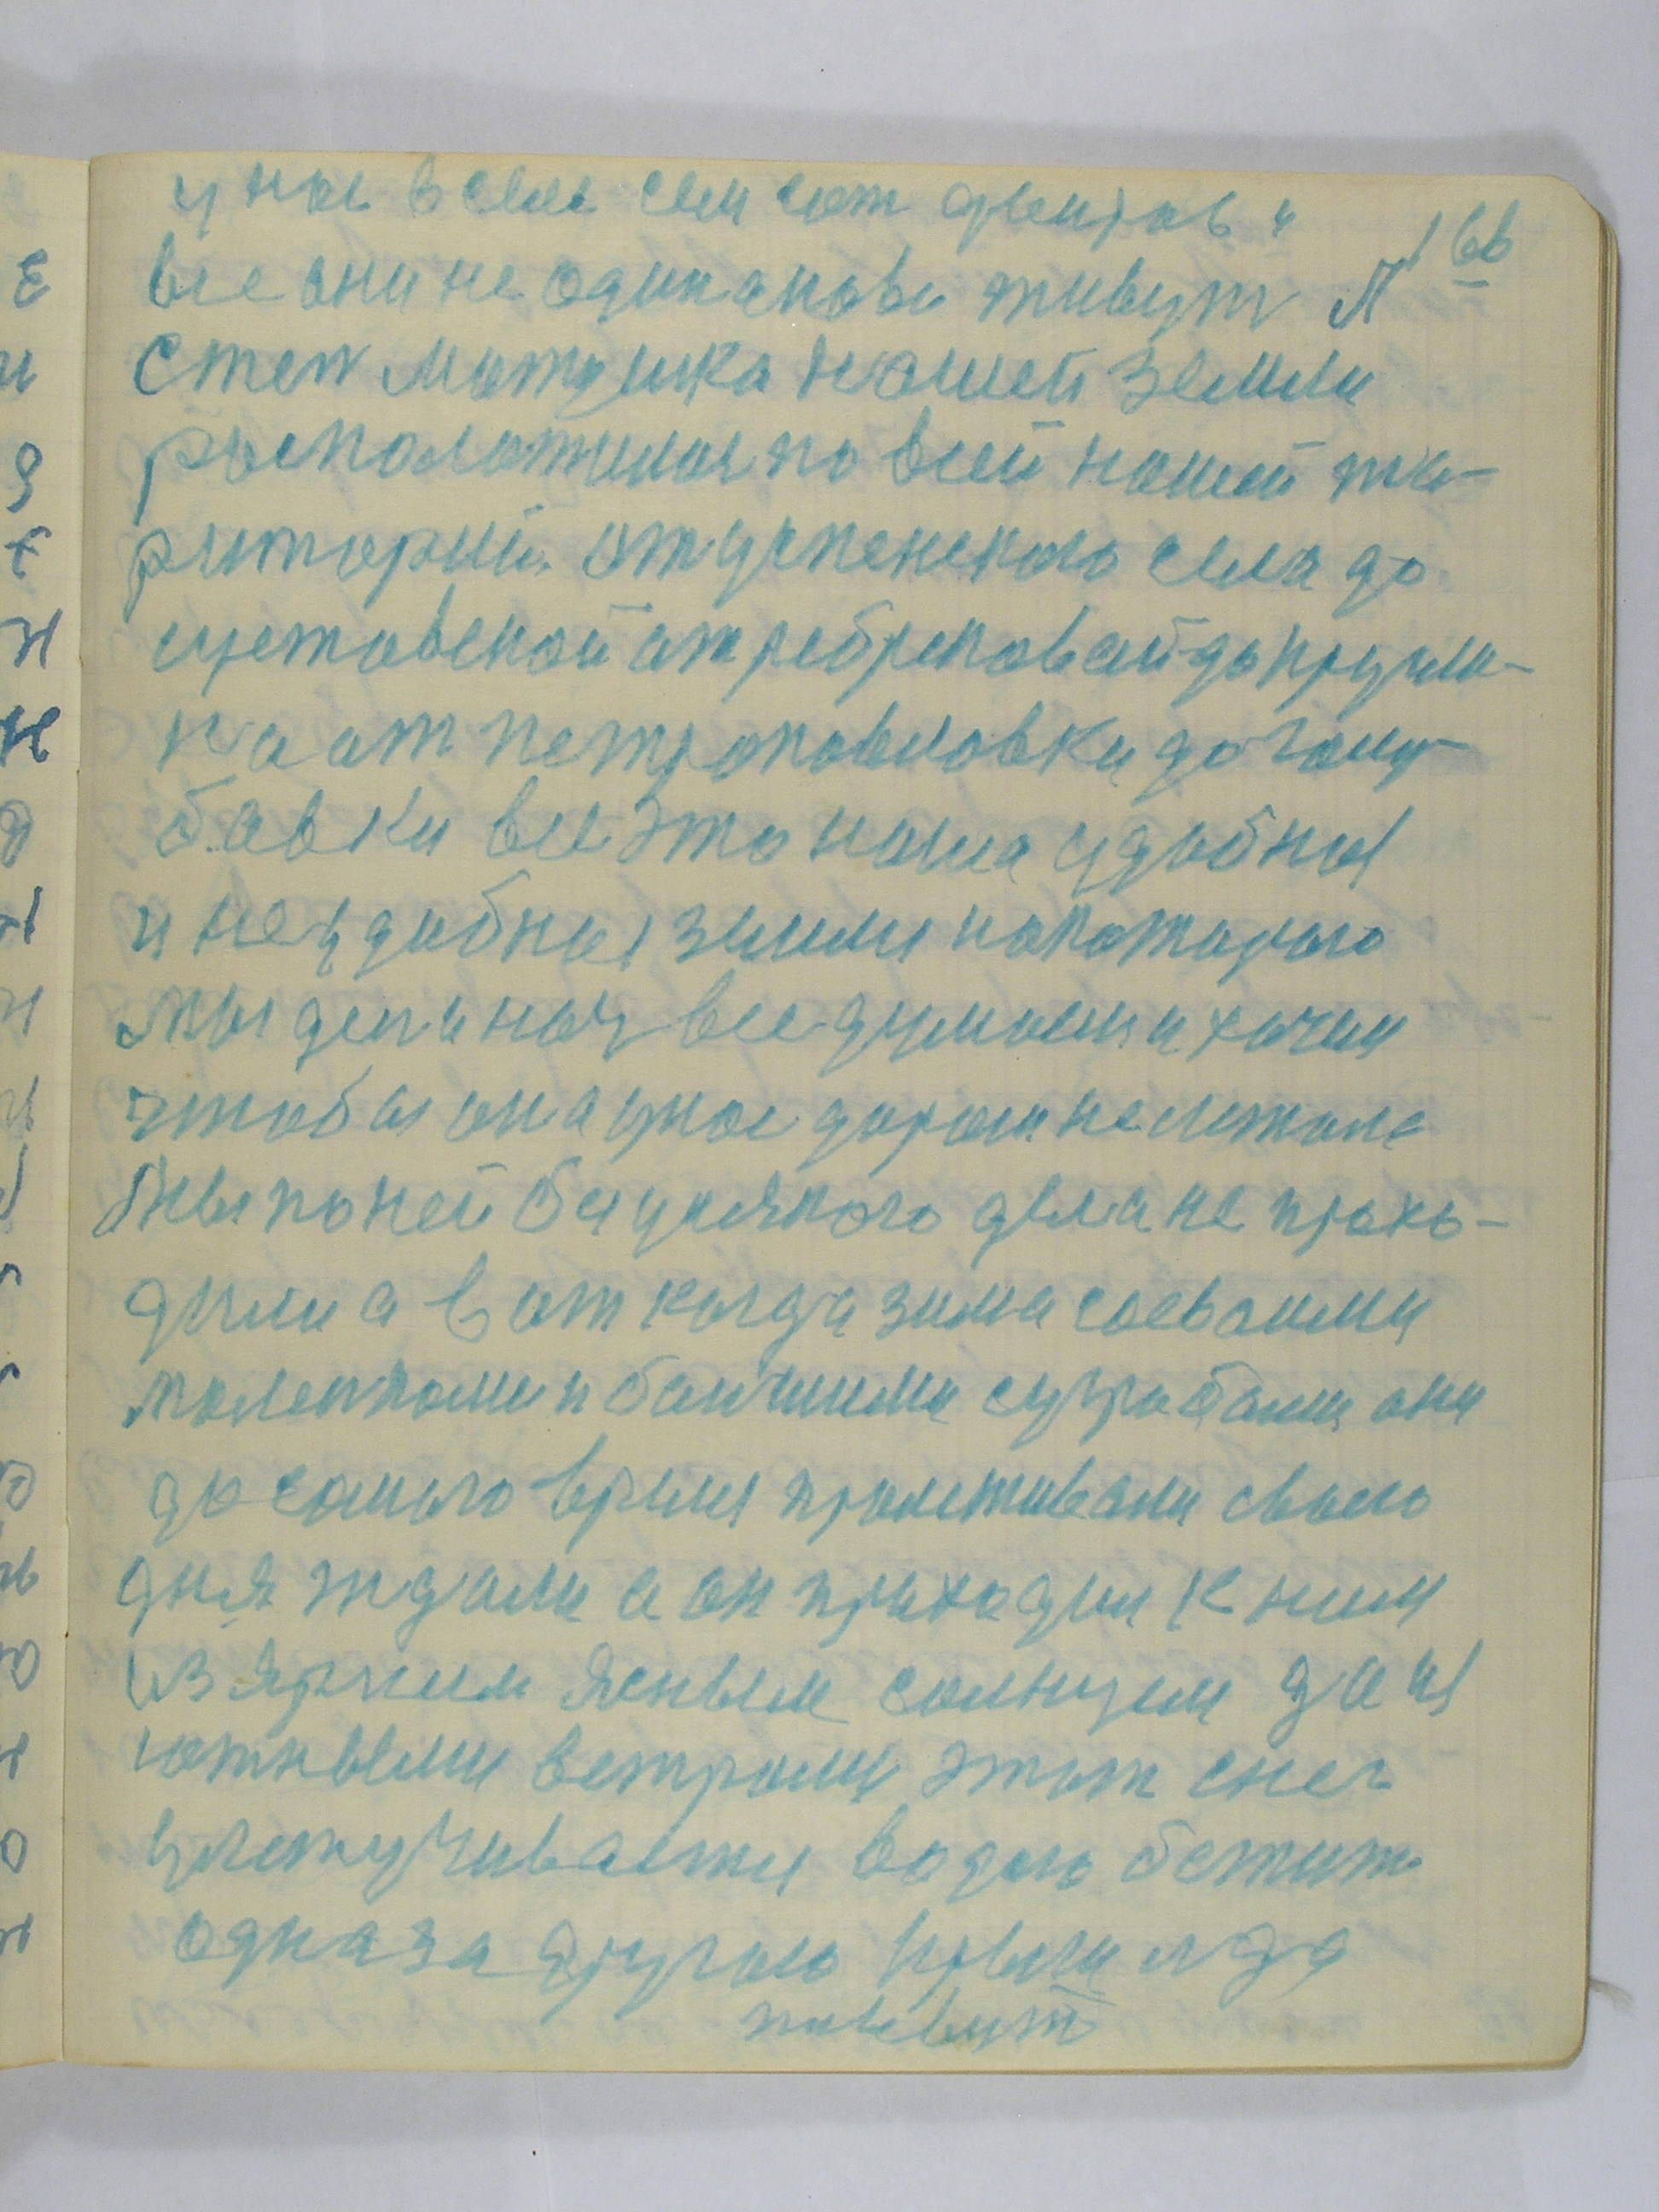 у нас в селе сем сот дваров и
166
все они не одинакова живут А
степ матушка нашей земли
располажилас по всей нашей те-
риторий. от успенскага села до
щетовской от ребрековай до круги-
ка от петропавловки до голу-
бавки все это наша удобных
и неудобных земли на катораго
мы ден и ноч все думаем и хочим
чтобы она у нас даром не лежала
бы и по ней без всякого дела не прахо-
дили а вот когда зима сосваими
маленкоми и балшими сугробами они
до самаго время пролеживали своего
дня ждали а он приходил к ним
из ярким ясным солнцем да из
южными ветрами этот снег
улетучивается водою бежит
одна за другою крыги лда
плывут